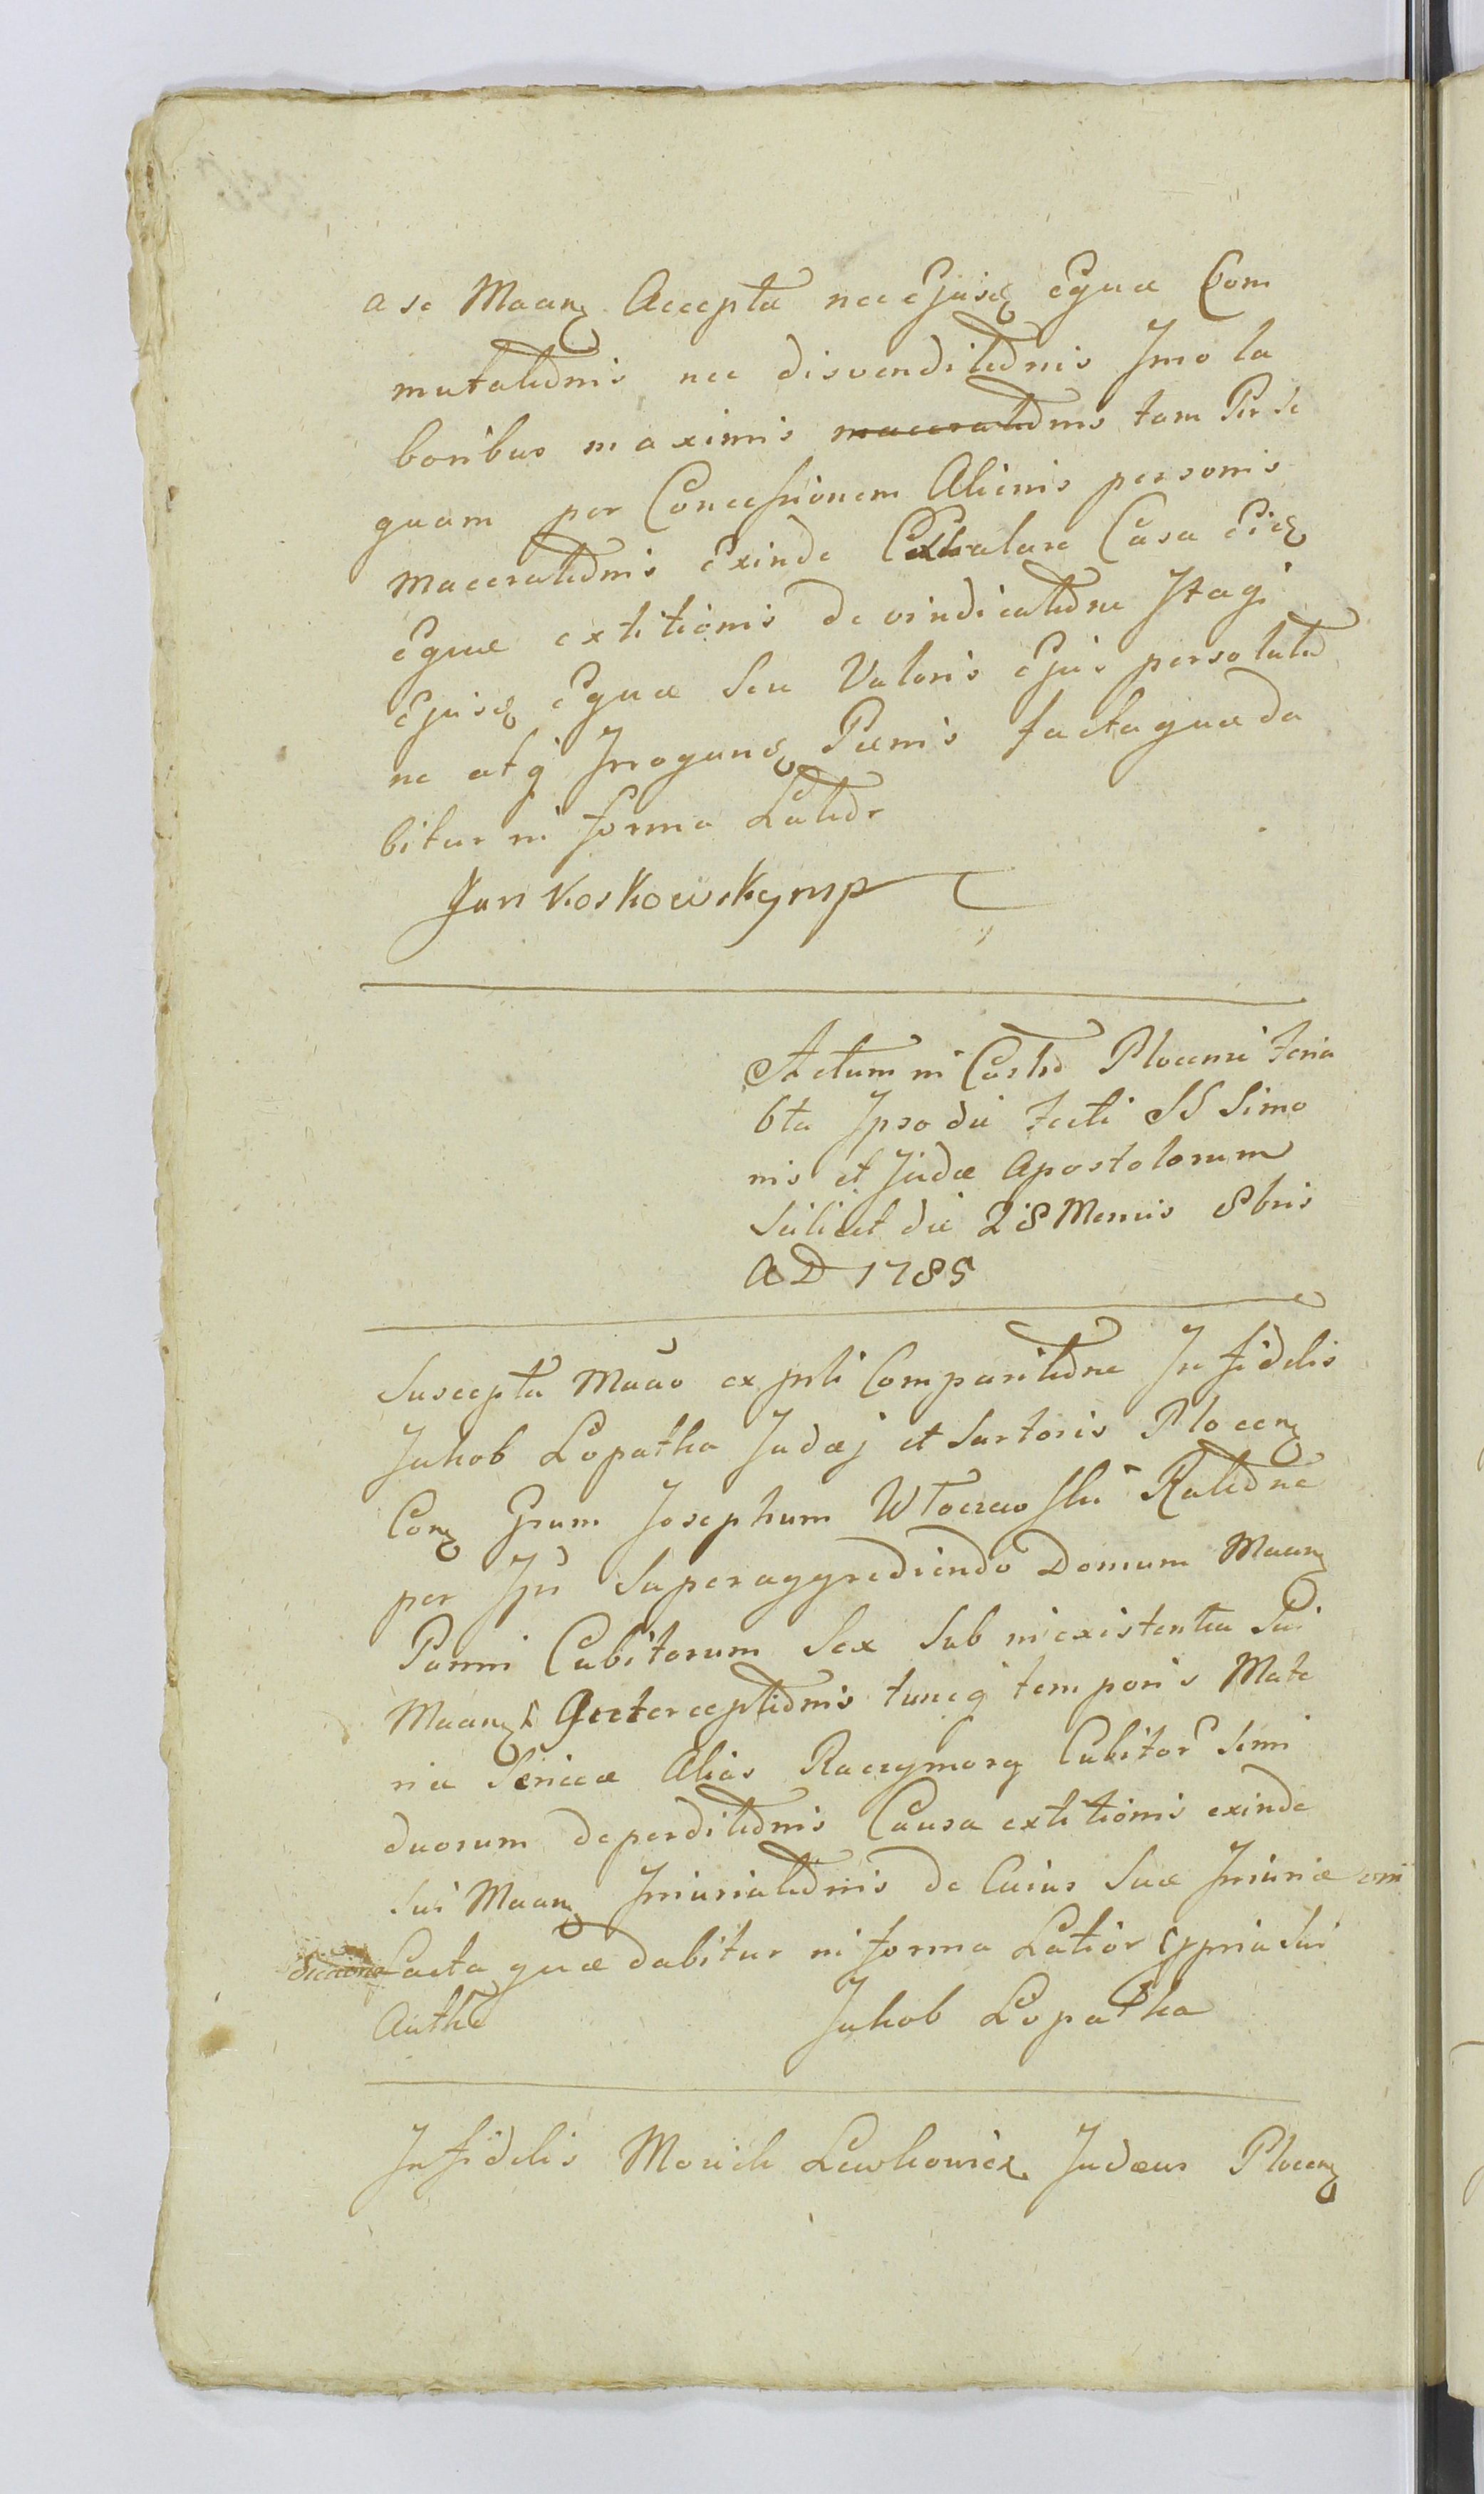 a se Maan Accepta nec Ejusd Equa Com
mutationis nec disvenditionis Imo la
boribus maximis macerationis tam Per se
quam per Concessionem Alienis personis
Macerationis Exinde Casa
Equae extitionis de vindicatione Itaq
Ejusd Equae seu Valoris Ejus persolutio
ne atq Irrogand Paenis facta quae da
bitur in forma Latior
Jan Koskowsky mp
Actum in Castro Plocensi Feria
6ta Ipso die Festi SS Simo
nis et Judae Apostolorum
Scilicet die 28 Mensis 8bris
AD 1785
Suscepta Mano ex Comparitione Infidelis
Jakob Łopatka Judaej et Sartoris Plocen
Con Grum Josephum Ratione
per Superaggrediendo Domum Maan
Panni Cubitorum Sex Sub inexistentia Sui
Maan tuncq temporis Mate
ria Sericea Alias Raczymorq Cubitor Simi
duorum deperditionis Causa extitionis exinde
sui Maan Iniuriationis de Cuius Suae Iniuriae
facta quae dabitur in forma Latior sui
Jakob Łopatka
Infidelis Lewkowicz Judaeus Plocen